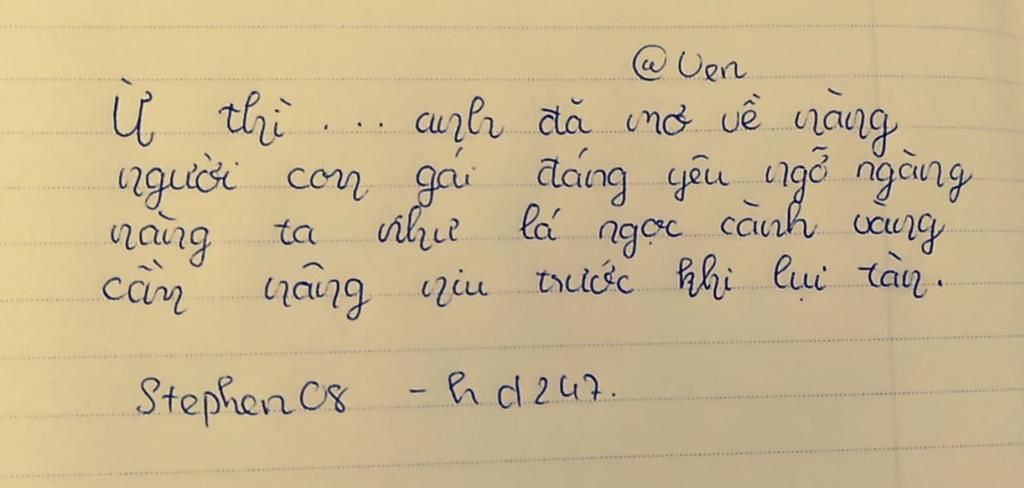 @Uen
Ừ thì ... anh đã mơ về nàng
người con gái đáng yêu ngỡ ngàng
nàng ta như lá ngọc cành vàng
cần nâng niu trước khi lụi tàn.
Stephen08 - hd247.